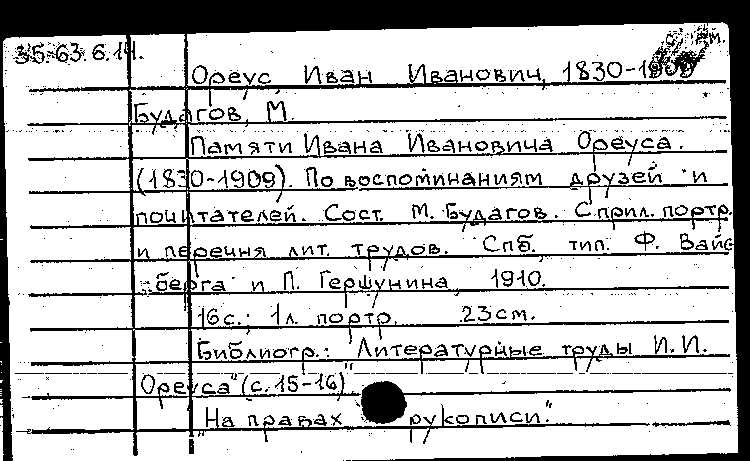 35.63.6.14.
Ореус, Иван Иванович, 1830-1909
Будагов, М.
Памяти Ивана Ивановича Ореуса.
(1830-1909). По воспоминаниям друзей и
почитателей. Сост. М. Будагов. С прил. портр.
и перечня лит. трудов. Спб., тип. Ф. Вайс
берга и П. Гершунина, 1910.
16 с.; 1 л. портр. 23 см.
Библиогр.: "Литературные труды И.И.
Ореуса" (с. 15-16)
"На правах рукописи".